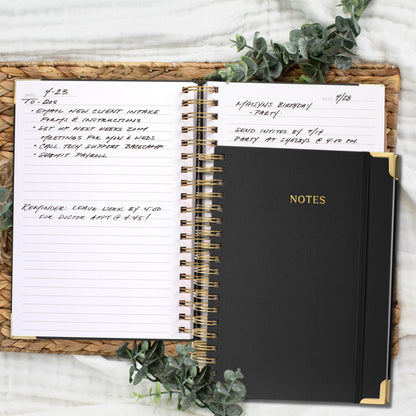 4-23
TO-DOS
• EMAIL NEW CLIENT INTAKE
FORMS & INSTRUCTIONS
• SET UP NEXT WEEKS ZOOM
MEETINGS FOR MON & WEDS.
• CALL TECH SUPPORT BASECAMP
• SUBMIT PAYROLL
REMINDER: LEAVE WORK BY 4:00
FOR DOCTOR APPT @ 4:45!
MAISYNS BIRTHDAY
• PARTY.
SEND INVITES BY 7/14
PARTY AT SHELBYS @ 4:00 PM.
NOTES